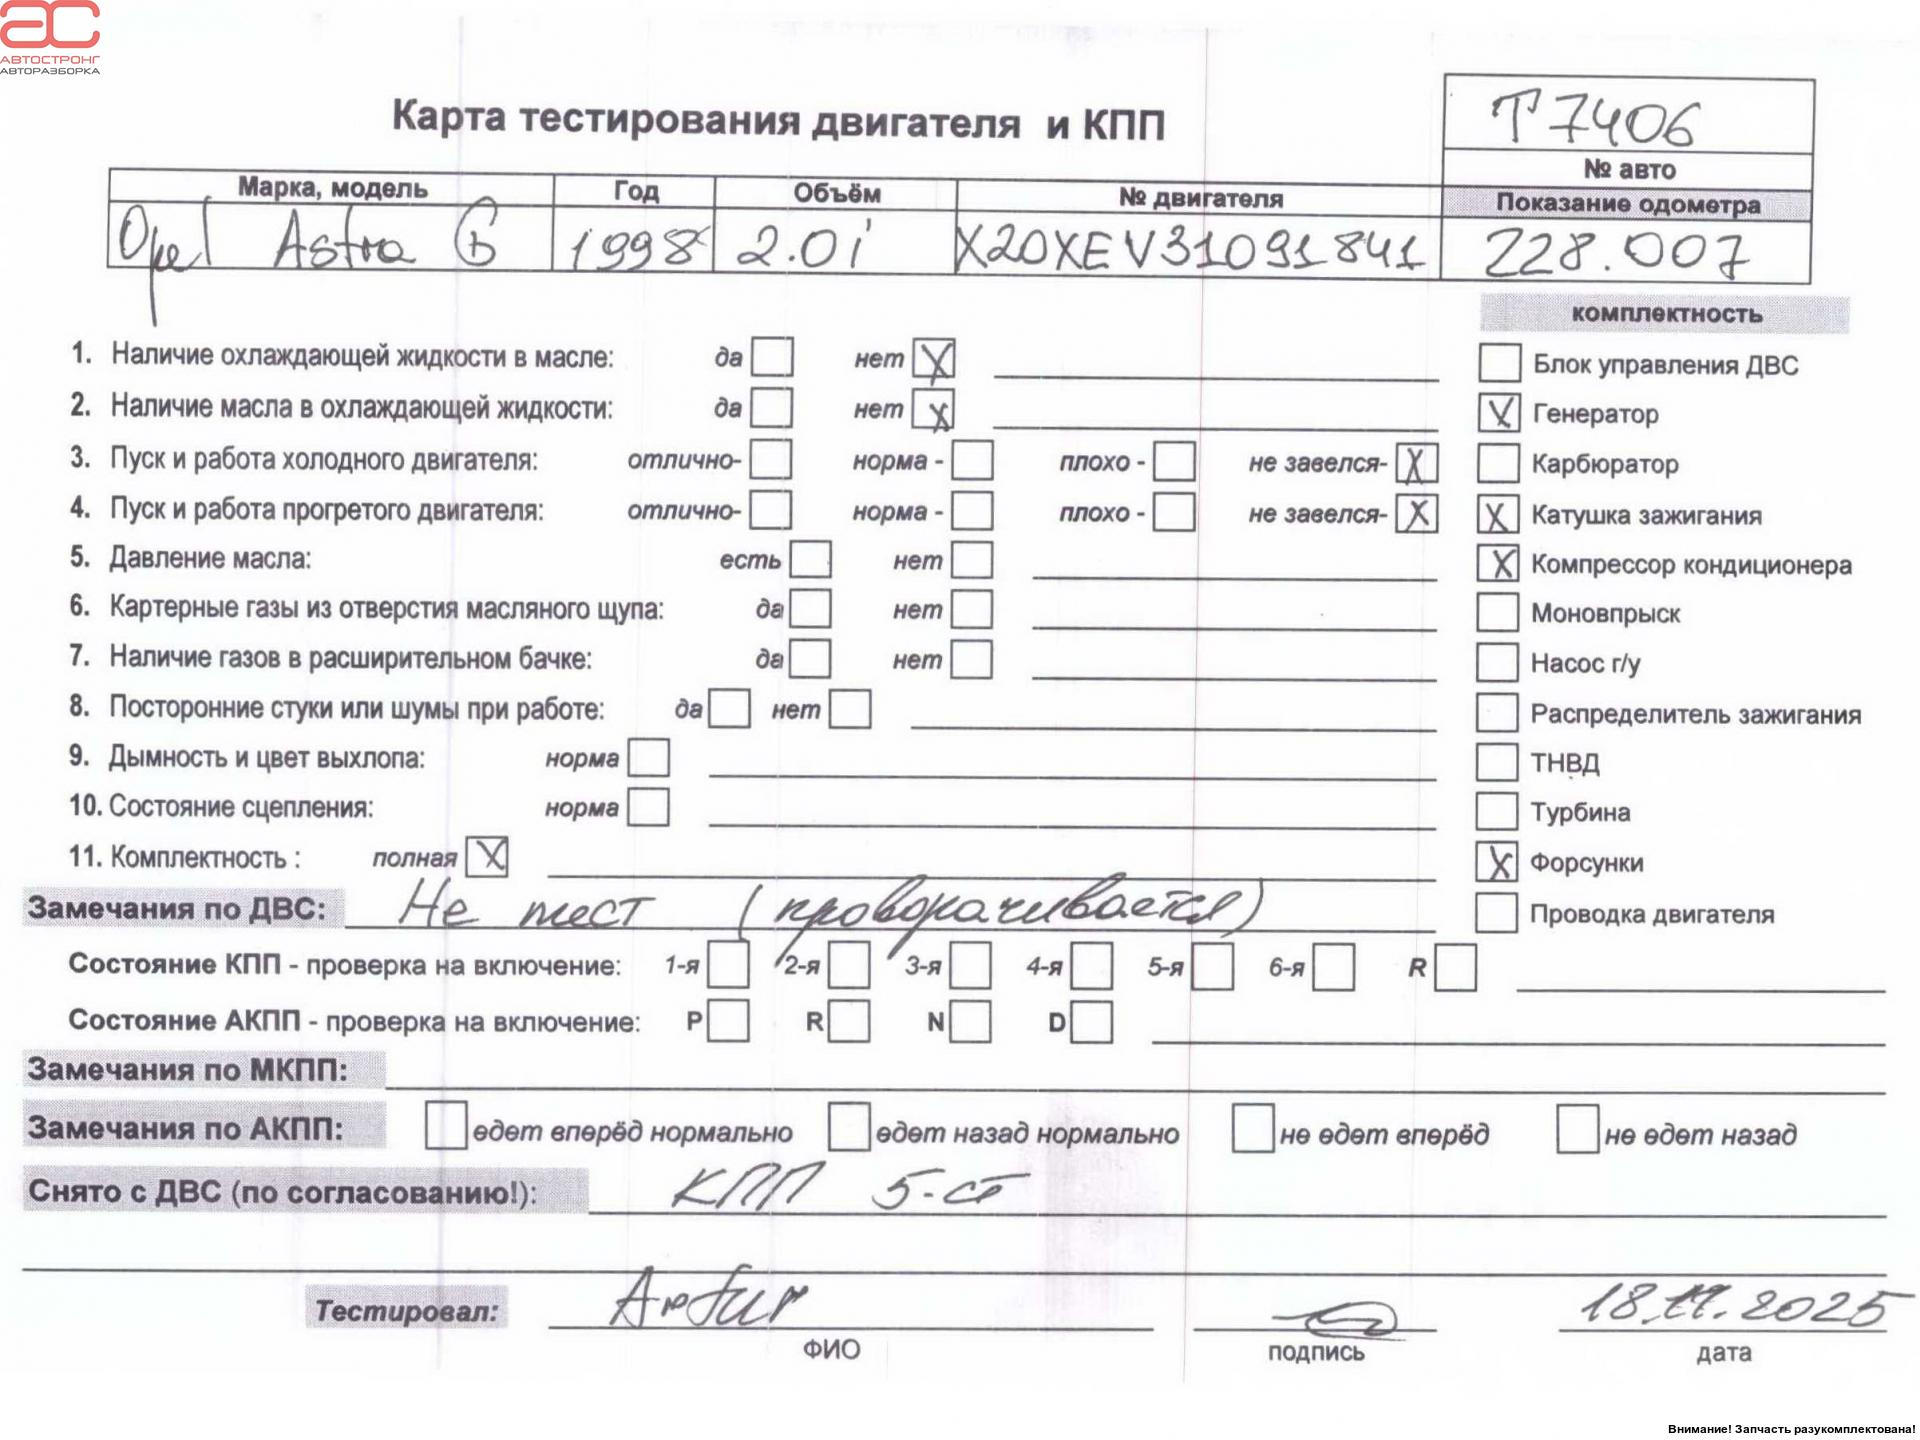 АС
АВТОСТРОНГ
АВТОРАЗБОРКА
Карта тестирования двигателя и КПП
Т7406
№ авто
Марка, модель Год Объём № двигателя Показание одометра
Opel Astra G 1998 2.0i X20XEV31091841 228.007
комплектность
1. Наличие охлаждающей жидкости в масле: да нет X
Блок управления ДВС
2. Наличие масла в охлаждающей жидкости: да нет X
X Генератор
3. Пуск и работа холодного двигателя: отлично- норма - плохо - не завелся- X
Карбюратор
4. Пуск и работа прогретого двигателя: отлично- норма - плохо - не завелся- X
X Катушка зажигания
5. Давление масла: есть нет
X Компрессор кондиционера
6. Картерные газы из отверстия масляного щупа: да нет
Моновпрыск
7. Наличие газов в расширительном бачке: да нет
Насос г/у
8. Посторонние стуки или шумы при работе: да нет
Распределитель зажигания
9. Дымность и цвет выхлопа: норма
ТНВД
10. Состояние сцепления: норма
Турбина
11. Комплектность : полная X
X Форсунки
Замечания по ДВС: Не тест (проворачивается)
Проводка двигателя
Состояние КПП - проверка на включение: 1-я 2-я 3-я 4-я 5-я 6-я R
Состояние АКПП - проверка на включение: P R N D
Замечания по МКПП:
Замечания по АКПП: едет вперёд нормально едет назад нормально не едет вперёд не едет назад
Снято с ДВС (по согласованию!): КПП 5-ст
Тестировал: Artur 18.11.2025
ФИО подпись дата
Внимание! Запчасть разукомплектована!